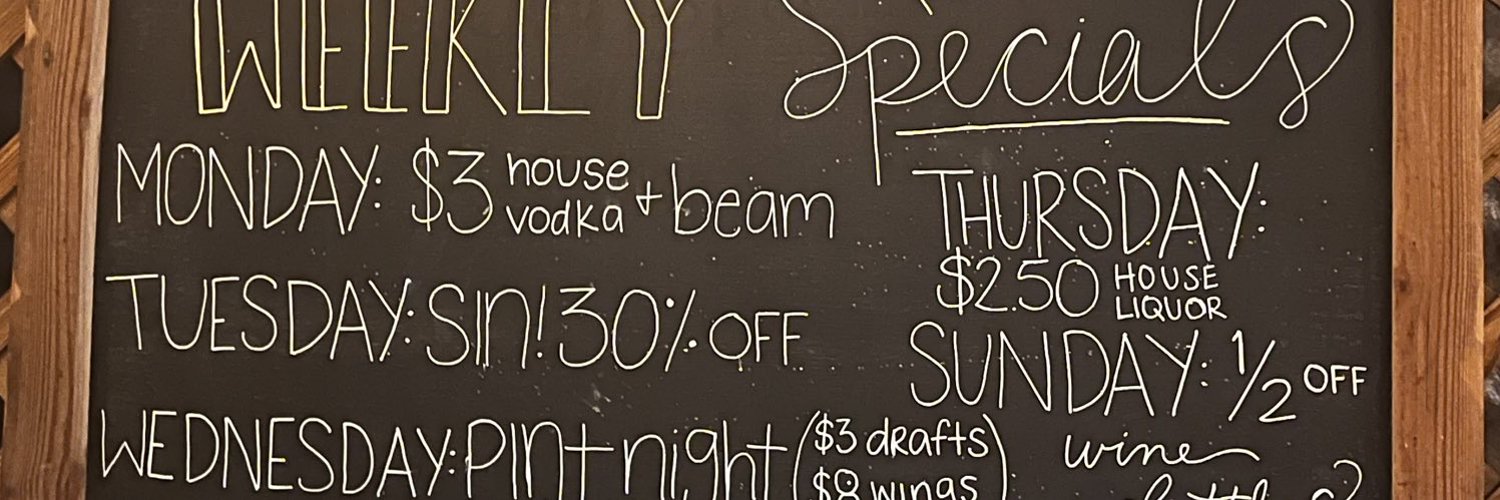 WEEKLY Specials
MONDAY: $3 house vodka + beam
TUESDAY: SIn! 30% OFF
WEDNESDAY: PInt night ($3 drafts
$8 wings
THURSDAY:
$2.50 HOUSE LIQUOR
SUNDAY: 1/2 OFF
wine